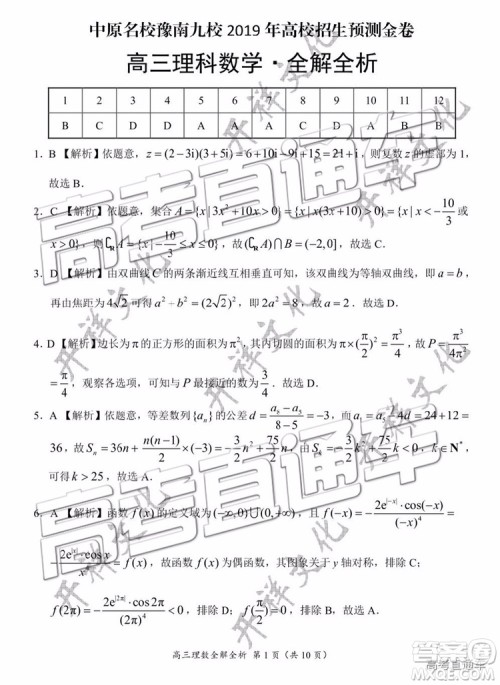 中原名校豫南九校 2019 年高校招生预测金卷
高三理科数学·全解全析
1 2 3 4 5 6 7 8 9 10 11 12
B C D D A A
1. B 【解析】依题意，z=(2−3i)(3+5i)=6+10i−9i+15=21+i，则复数 z 的虚部为 1，
故选 B.
2. C 【解析】依题意，集合 A={x|3x²+10x>0}={x|x(3x+10)>0}={x|x<−10/3 或
x>0}，则 ∁RA={x|−10/3≤x≤0}，故(∁RA)∩B=(−2,0]. 故选 C.
3. D 【解析】由双曲线 C 的两条渐近线互相垂直可知，双曲线为等轴双曲线，故 a=b，
再由焦距为 4√2 可得 a²+b²=(2√2)²，即 2a²=8，故 a=2. 故选 D.
4. D 【解析】边长为 π 的正方形的面积为 π²，其内切圆的面积为 π×(π/2)²=π³/4，故 P=π³/4π²
=π/4，观察各选项，可知与 P 最接近的数为 3/4. 故选 D.
5. A 【解析】依题意，等差数列{aₙ}的公差 d=(a₈−a₅)/(8−5)=−3，而 a₁=a₅−4d=24+12=
36，故 Sₙ=36n+n(n−1)/2×(−3)=−3/2n²+75/2n，由 Sₖ=−3/2k²+75/2k<0，k∈N*
可得 k>25，故选 A.
6. A 【解析】函数 f(x) 的定义域为(−∞,0)∪(0,+∞)，且 f(−x)=−2e^|−x|·cos(−x)/(−x)⁴=
−2e^|x|·cos x/x⁴=f(x)，故函数 f(x) 为偶函数，其图象关于 y 轴对称，排除 C；
f(2π)=−2e^|2π|·cos2π/(2π)⁴<0，排除 D；f(π/2)=0，排除 B；故选 A.
高三理数全解全析 第 1 页（共 10 页）
高考直通车
开祥文化
高考直通车